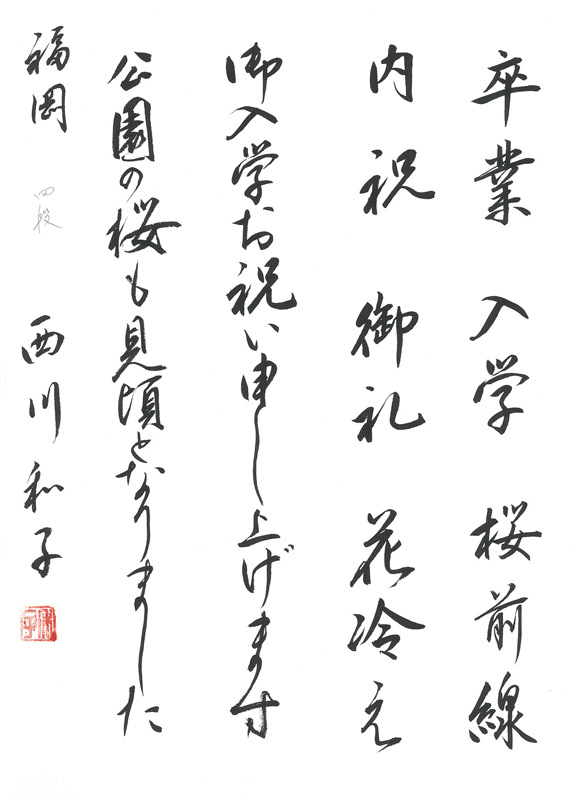 卒業 入学 桜前線
内祝 御礼 花冷え
御入学お祝い申し上げます
公園の桜も見頃となりました
福岡 四段 西川和子